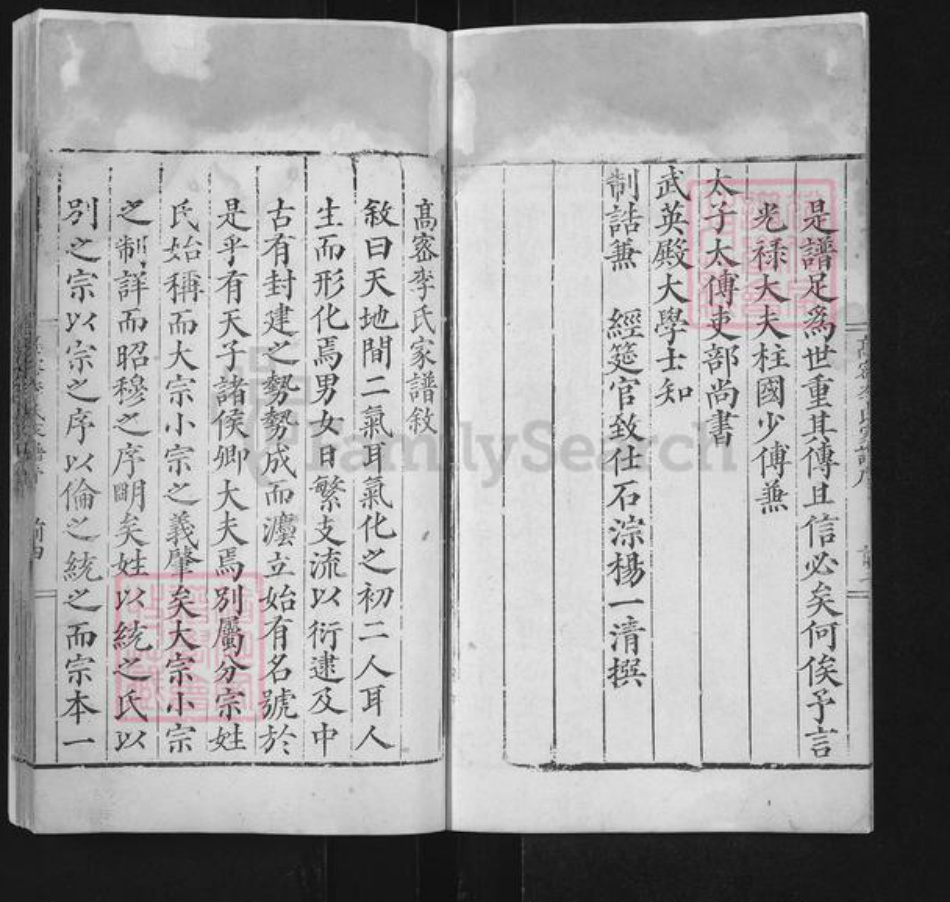 是譜足爲世重其傳且信必矣何俟予言
光祿大夫柱國少傅兼
太子太傅吏部尚書
武英殿大學士知
制誥兼　經筵官致仕石淙楊一清撰
高密李氏家譜敘
敘曰天地間二氣耳氣化之初二人耳人
生而形化焉男女日繁支流以衍逮及中
古有封建之勢勢成而灋立始有名號於
是乎有天子諸侯卿大夫焉別屬分宗姓
氏始稱而大宗小宗之義肇矣大宗小宗
之制詳而昭穆之序明矣姓以統之氏以
別之宗以宗之序以倫之統之而宗本一
FamilySearch